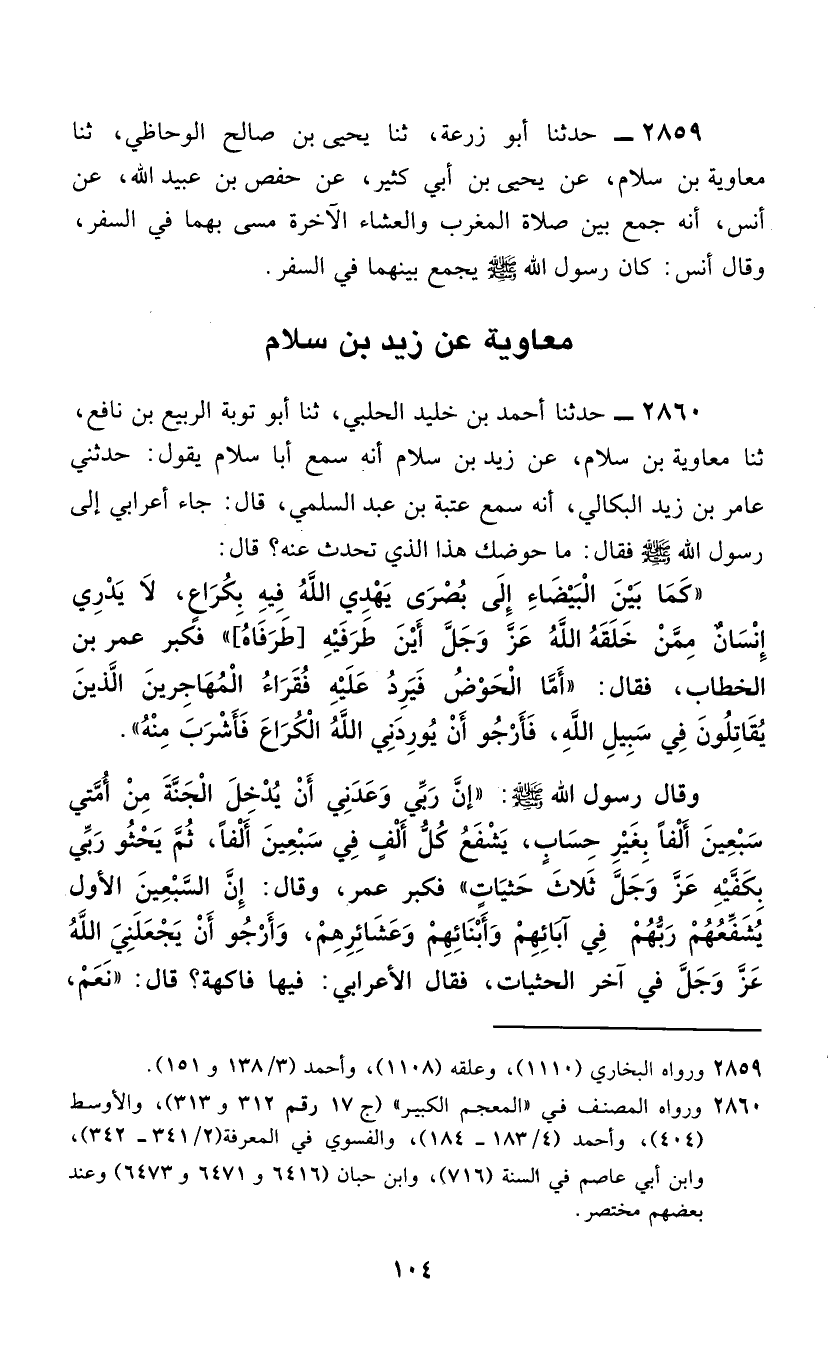 ٢٨٥٩ ــ حدثنا أبو زرعة، ثنا يحيى بن صالح الوحاظي، ثنا
معاوية بن سلام، عن يحيى بن أبي كثير، عن حفص بن عبيد الله، عن
أنس، أنه جمع بين صلاة المغرب والعشاء الآخرة مسى بهما في السفر،
وقال أنس: كان رسول الله ﷺ يجمع بينهما في السفر.
معاوية عن زيد بن سلام
٢٨٦٠ ــ حدثنا أحمد بن خليد الحلبي، ثنا أبو توبة الربيع بن نافع،
ثنا معاوية بن سلام، عن زيد بن سلام أنه سمع أبا سلام يقول: حدثني
عامر بن زيد البكالي، أنه سمع عتبة بن عبد السلمي، قال: جاء أعرابي إلى
رسول الله ﷺ فقال: ما حوضك هذا الذي تحدث عنه؟ قال:
«كَمَا بَيْنَ الْبَيْضَاءِ إِلَى بُصْرَى يَهْدِي اللَّهُ فِيهِ بِكُرَاعٍ، لَا يَدْرِي
إِنْسَانٌ مِمَّنْ خَلَقَهُ اللَّهُ عَزَّ وَجَلَّ أَيْنَ طَرَفَيْهِ [طَرَفَاهُ]» فكبر عمر بن
الخطاب، فقال: «أَمَّا الْحَوْضُ فَيَرِدُ عَلَيْهِ فُقَرَاءُ الْمُهَاجِرِينَ الَّذينَ
يُقَاتِلُونَ فِي سَبِيلِ اللَّهِ، فَأَرْجُو أَنْ يُورِدَنِي اللَّهُ الْكُرَاعَ فَأَشْرَبَ مِنْهُ».
وقال رسول الله ﷺ: «إنَّ رَبِّي وَعَدَنِي أَنْ يُدْخِلَ الْجَنَّةَ مِنْ أُمَّتي
سَبْعِينَ أَلْفاً بِغَيْرِ حِسَابٍ، يَشْفَعُ كُلُّ أَلْفٍ فِي سَبْعِينَ أَلْفاً، ثُمَّ يَحْثُو رَبِّي
بِكَفَّيْهِ عَزَّ وَجَلَّ ثَلَاثَ حَثيَاتٍ» فكبر عمر، وقال: إِنَّ السَّبْعِينَ الأول
يُشَفِّعُهُمْ رَبُّهُمْ فِي آبَائِهِمْ وَأَبْنَائِهِمْ وَعَشَائِرِهِمْ، وَأَرْجُو أَنْ يَجْعَلَنِيَ اللَّهُ
عَزَّ وَجَلَّ في آخر الحثيات، فقال الأعرابي: فيها فاكهة؟ قال: «نَعَمْ،
٢٨٥٩ ورواه البخاري (١١١٠)، وعلقه (١١٠٨)، وأحمد (٣/ ١٣٨ و ١٥١).
٢٨٦٠ ورواه المصنف في «المعجم الكبير» (ج ١٧ رقم ٣١٢ و ٣١٣)، والأوسط
(٤٠٤)، وأحمد (٤/ ١٨٣ ــ ١٨٤)، والفسوي في المعرفة(٢/ ٣٤١ ــ ٣٤٢)،
وابن أبي عاصم في السنة (٧١٦)، وابن حبان (٦٤١٦ و ٦٤٧١ و ٦٤٧٣) وعند
بعضهم مختصر.
١٠٤